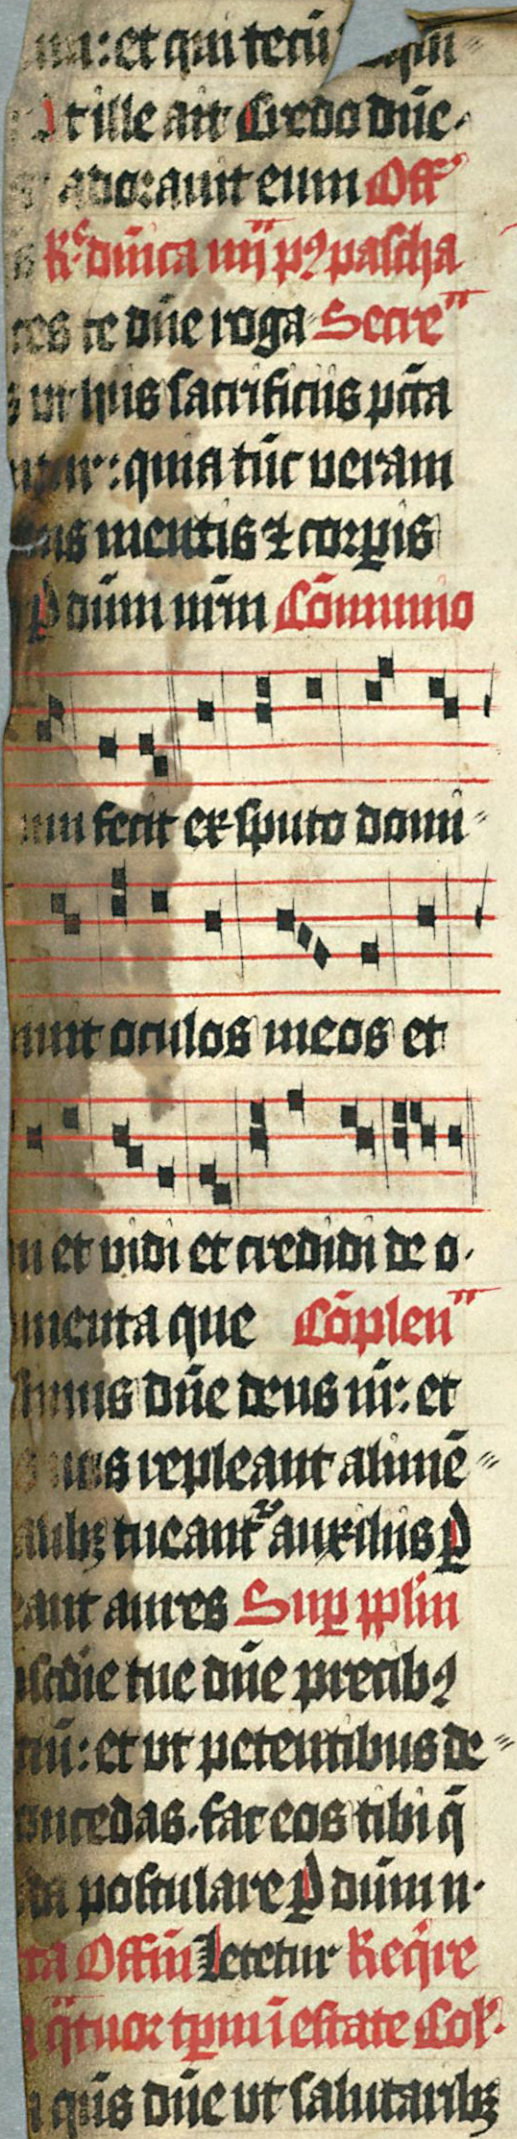 et qui tecū
At ille ait Credo dñe
adorauit eum Off
R̄c dn̄ica iiij pꝰ pascha
te dn̄e roga Secre
ut hiis sacrificiis pcc̄a
quia tūc ueram
mentis ⁊ corꝑis
ꝑ dūm nr̄m Cōmunio
fecit ex sputo domi
oculos meos et
et uidi et credidi de o
menta que Cōplen
dn̄e deus nr̄: et
nos repleant alimē
tueantʳ auxiliis ꝑ
aures Suꝑ pplm̄
tue dn̄e precibꝰ
et ut petentibus de
concedas. fac eos tibi q̄
postulare ꝑ dūm n
Offm̄ Letetur Reqͥre
q̈tuor tꝑm ī estate Coll
qs̄ dn̄e ut salutaribꝫ